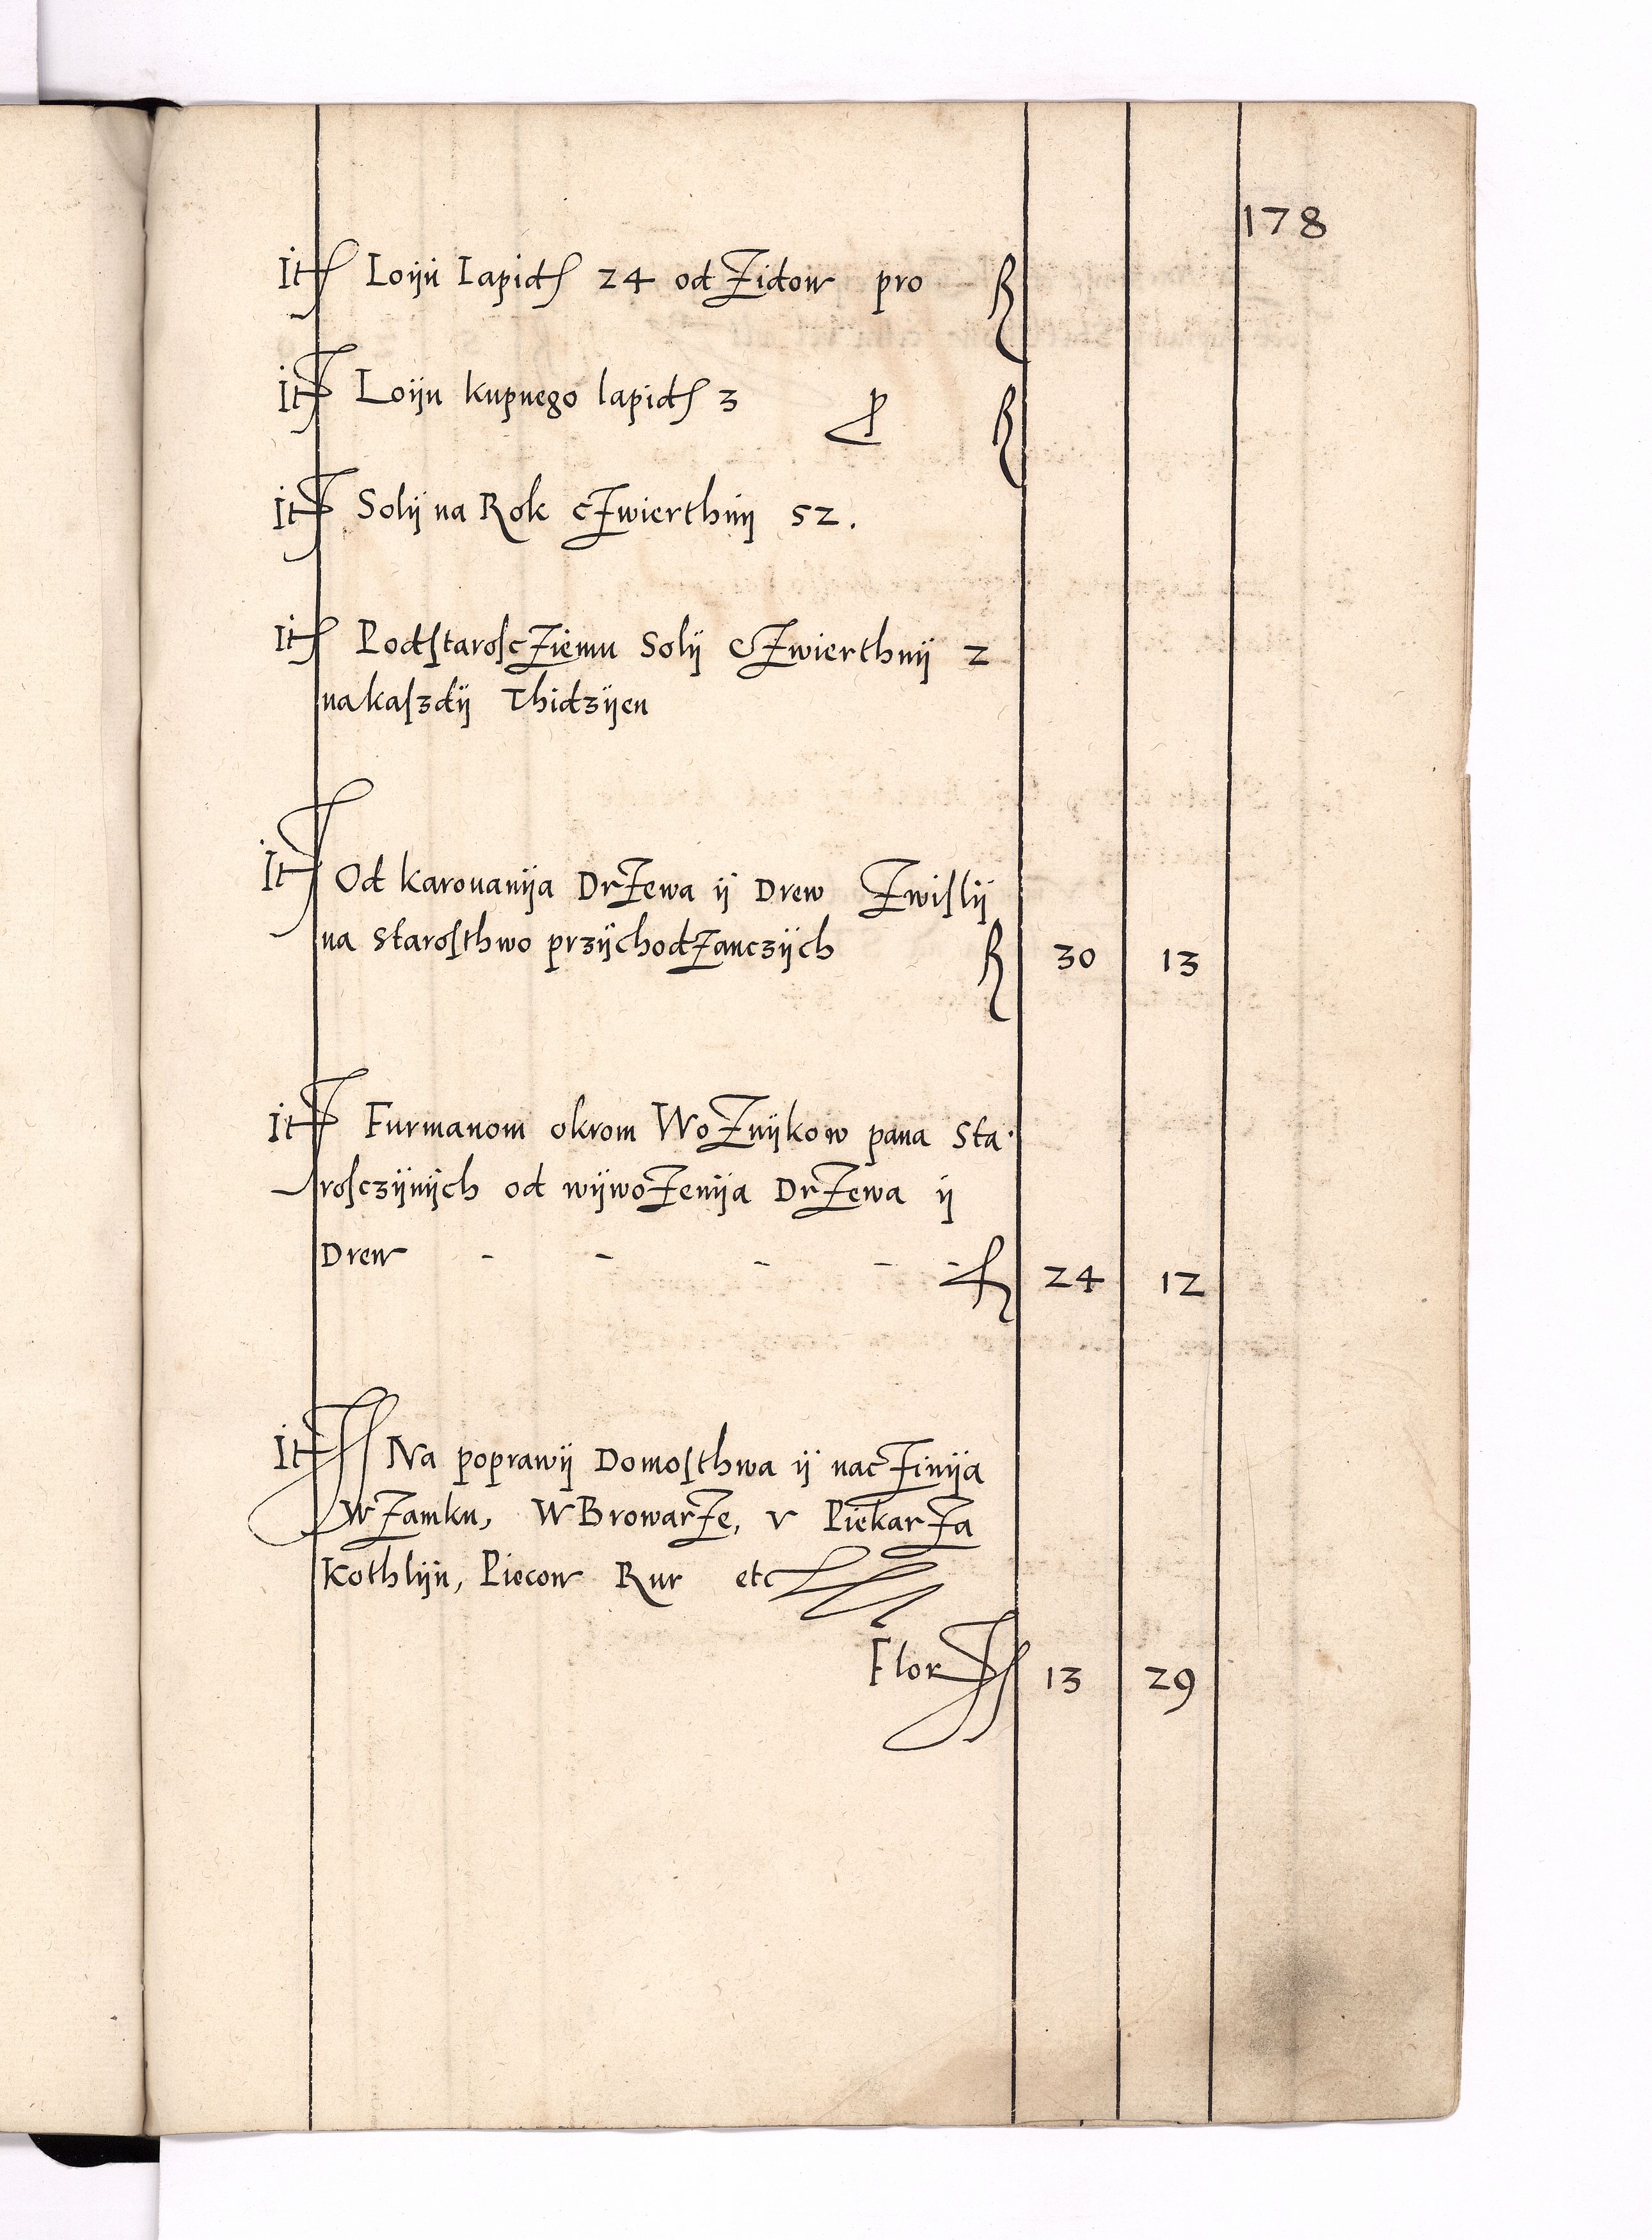 178
It Loiju Lapid 24 od Zidow pro fl
It Loiju kupnego lapid 3 p fl
It Solij na Rok cZwierthnij 52.
It Podſtaroſcziemu Solij CZwierthnij 2
na kaſzdij Thidzijen
It Od karouanija DrZewa ij Drew Zwiſlij
na Staroſthwo przijchodZanczijch fl 30 13
It Furmanom okrom WoZnijkow pana Sta
roſczijnijch od wijwoZenija DrZewa ij
Drew - - - - - fl 24 12
It Na poprawij Domoſthwa ij nacZinija
W Zamku, W BrowarZe, v PiekarZa
Kothlijn, Piecow Rur etc
Flor 13 29